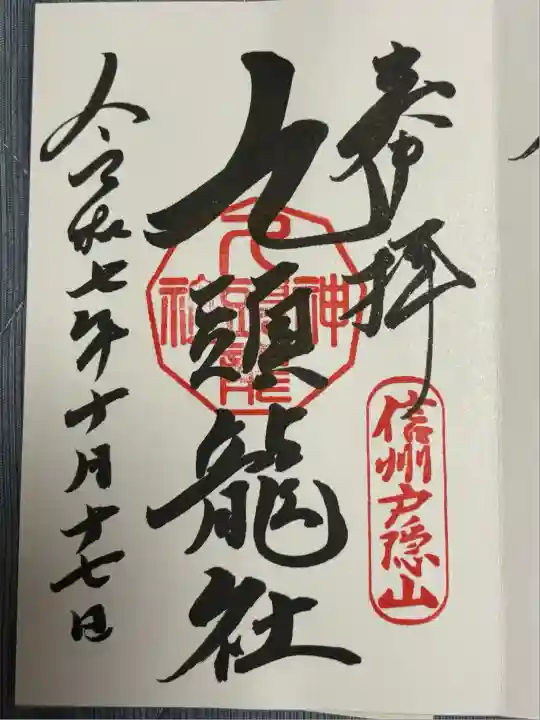 奉拝
信州戸隠山
九頭龍社
九頭龍
神
社
令和七年十月十七日